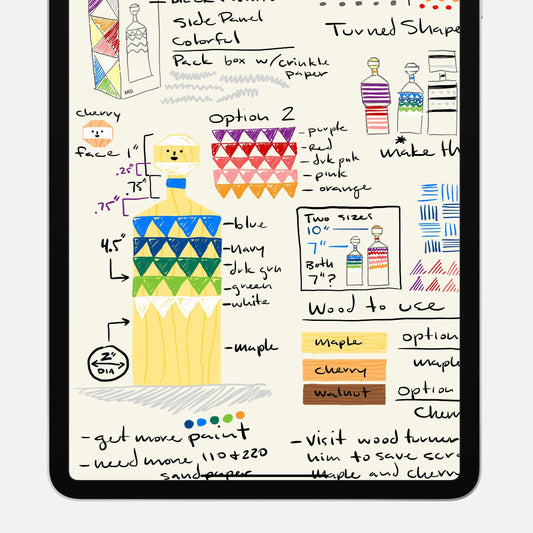 Side Panel
Colorful
Pack box w/crinkle
paper
MG
Turned Shape
cherry
face
1"
.25"
.75"
.75"
4.5"
2"
DIA
blue
navy
drk grn
green
white
maple
Option 2
purple
Red
drk pnk
pink
orange
make th
Two sizes
10"
7"
Both
7"?
Wood to use
maple
cherry
walnut
option
maple
option
Cherr
- get more paint
- need more 110 & 220
sandpaper
- visit wood turner
him to save scra
maple and cherry